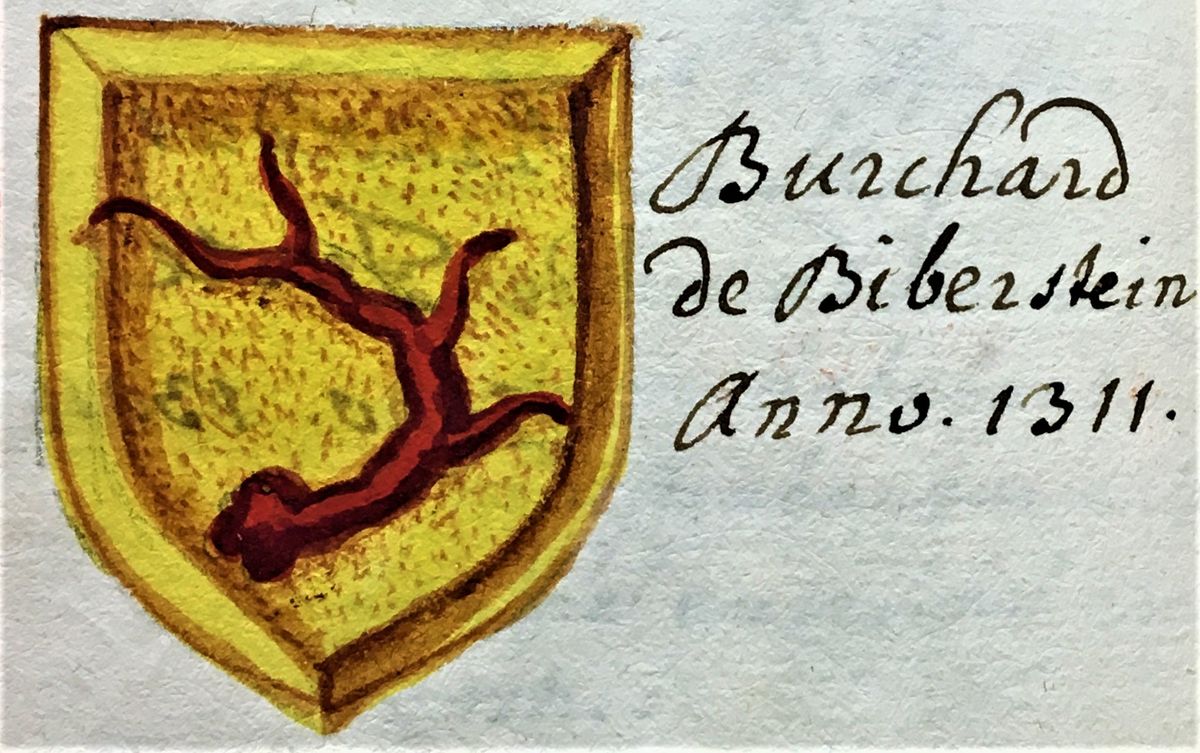 Burchard
de Biberstein
Anno. 1311.